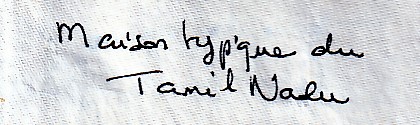 Maison typique du
Tamil Nadu